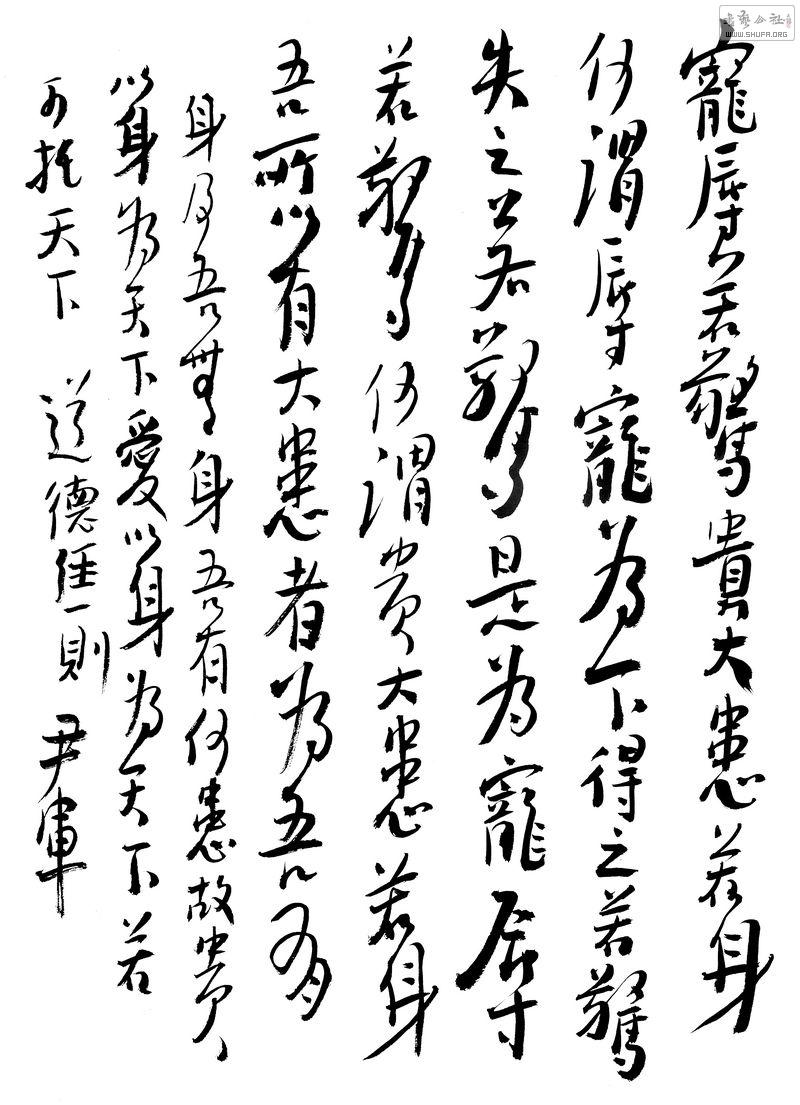 寵辱若驚貴大患若身
何謂辱寵為下得之若驚
失之若驚是為寵辱
若驚何謂貴大患若身
吾所以有大患者為吾有
身及吾無身吾有何患故貴
以身為天下愛以身為天下若
可托天下 道德經一則 尹軍
WWW.SHUFA.ORG